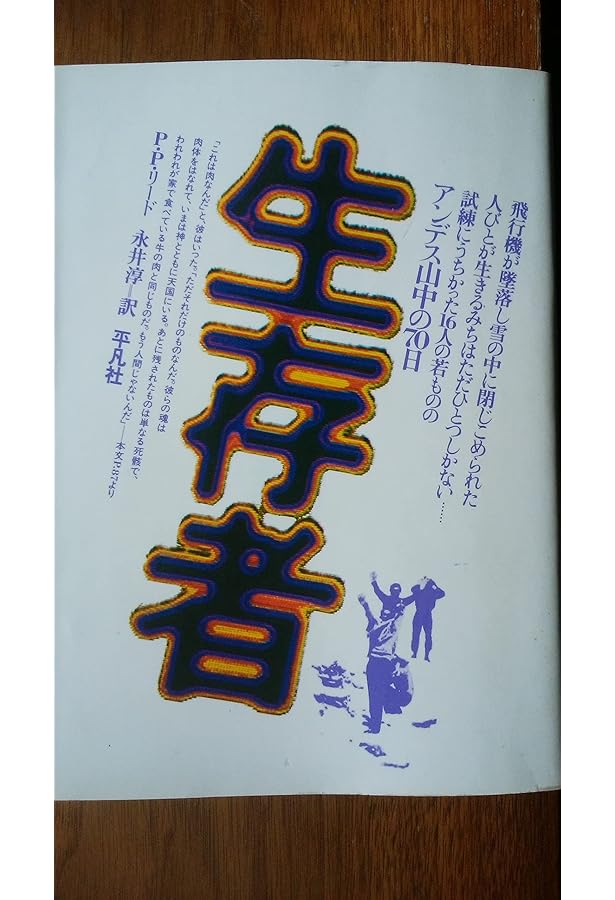 飛行機が墜落し雪の中に閉じこめられた
人びとが生きるみちはただひとつしかない……
試練にうちかった16人の若ものの
アンデス山中の70日
生存者
「これは肉なんだ」と、彼はいった。「ただそれだけのものなんだ。彼らの魂は
肉体をはなれて、いまは神とともに天国にいる。あとに残されたものは単なる死骸で、
われわれが家で食べている牛の肉と同じものだ。もう人間じゃないんだ」——本文P.87より
P・P・リード 永井淳=訳 平凡社